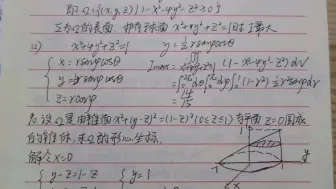 即Ω={(x,y,z)|1-x²-4y²-z²≥0}
Ω的表面 即为椭球面 x²+4y²+z²=1时 I最大
(2) x²+4y²+z²=1 y=½rsinφsinθ
x=rsinφcosθ
y=½rsinφsinθ
z=rcosφ
Imax=∭(1-x²-4y²-z²)dv
=∫dθ∫dφ∫(1-r²)½r²sinφdr
=4π/15
设Ω是由锥面x²+(y-z)²=(1-z)²(0≤z≤1)与平面z=0围成
的锥体,求Ω的形心坐标.
解 令x=0
y-z=1-z
y=1